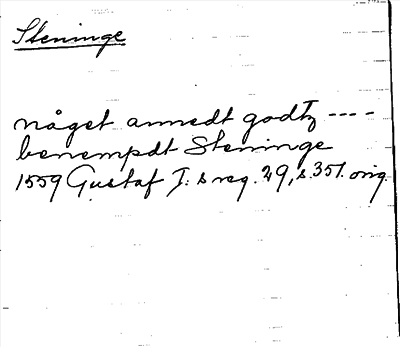 Steninge
något annedt godtz ----
benempdt Steninge
1559 Gustaf I:s reg. 29, s. 351. orig.